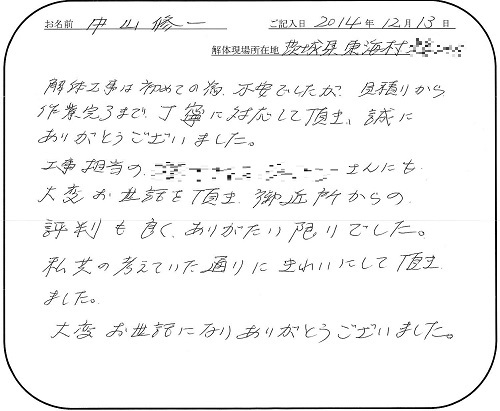 お名前 中山修一 ご記入日 2014年 12月 13日
解体現場所在地 茨城県東海村
解体工事は初めての為、不安でしたが、見積りから
作業完了まで、丁寧に対応して頂き、誠に
ありがとうございました。
工事担当の、 さんにも
大変お世話を頂き、御近所からの
評判も良く、ありがたい限りでした。
私共の考えていた通りにきれいにして頂き
ました。
大変お世話になりありがとうございました。